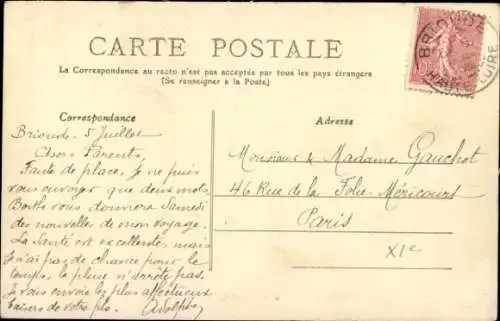 BRIOUDE
HAUTE LOIRE
CARTE POSTALE
La Correspondance au recto n'est pas acceptée par tous les pays étrangers
(Se renseigner à la Poste)
Correspondance
Brioude, 5 Juillet
Chers Parents,
Faute de place, je ne puis
vous envoyer que deux mots.
Berthe vous donnera Samedi
des nouvelles de mon voyage.
La Santé est excellente, mais
Je n'ai pas de chance pour le
temps, la pluie n'arrête pas.
Je vais envoie les plus affectueux
baisers de votre fils. Adolphe
Adresse
Monsieur & Madame Gauchot
46 Rue de la Folie Méricourt
Paris
XIe